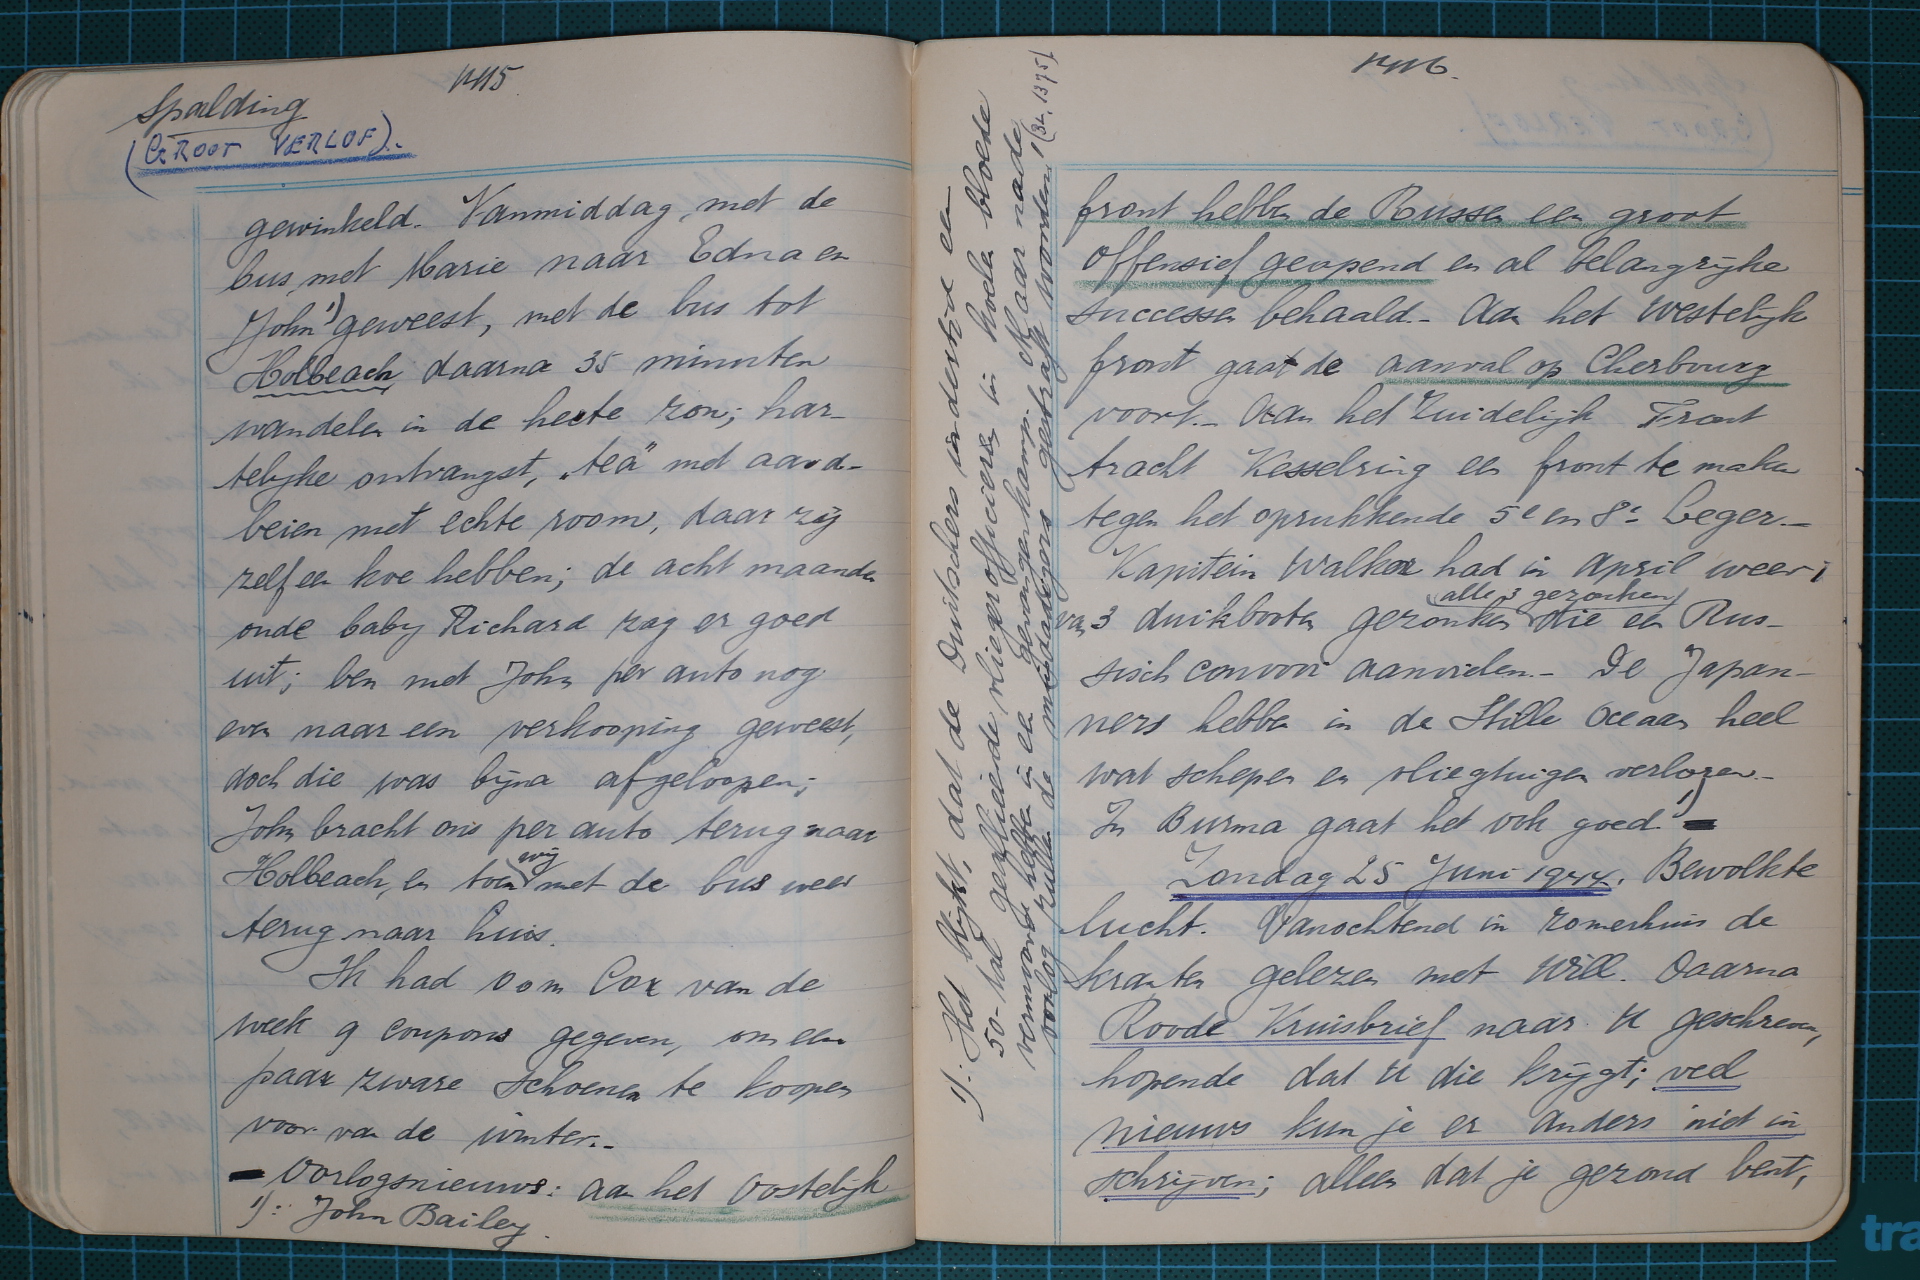 1415
Spalding
(GROOT VERLOF).
gewinkeld. Vanmiddag, met de
bus, met Marie naar Edna en
John 1) geweest, met de bus tot
Holbeach, daarna 35 minuten
wandelen in de heete zon; har-
telijke ontvangst, „tea" met aard-
beien met echte room, daar zij
zelf een koe hebben; de acht maanden
oude baby Richard zag er goed
uit; ben met John per auto nog
even naar een verkooping geweest,
doch die was bijna afgeloopen;
John bracht ons per auto terug naar
Holbeach, en toen wij met de bus weer
terug naar huis.
Ik had oom Cox van de
week 9 coupons gegeven, om een
paar zware schoenen te koopen
voor van de winter.-
- Oorlogsnieuws: aan het Oostelijk
1): John Bailey.
1): Het blijkt, dat de Duitschers indertijd een
50-tal geallieerde vliegerofficieren in koelen bloede
vermoord hebben in een gevangenkamp. Maar na de
oorlog zullen de misdadigers gestraft worden! (Bl. 1375)
1416.
front hebben de Russen een groot
offensief geopend en al belangrijke
successen behaald.- Aan het Westelijk
front gaat de aanval op Cherbourg
voort.- Aan het Zuidelijk Front
tracht Kesselring een front te maken
tegen het oprukkende 5e en 8e Leger.-
Kapitein Walker had in April weer
van 3 duikbooten gezonken die een Rus-
(alle 3 gezonken)
sisch convooi aanvielen.- De Japan-
ners hebben in de Stille Oceaan heel
wat schepen en vliegtuigen verloren.-
In Burma gaat het ook goed. 1) -
Zondag 25 Juni 1944. Bewolkte
lucht. Vanochtend in zomerhuis de
kranten gelezen met Will. Daarna
Roode Kruisbrief naar U geschreven,
hopende dat U die krijgt; veel
nieuws kun je er anders niet in
schrijven; alleen dat je gezond bent,
tra